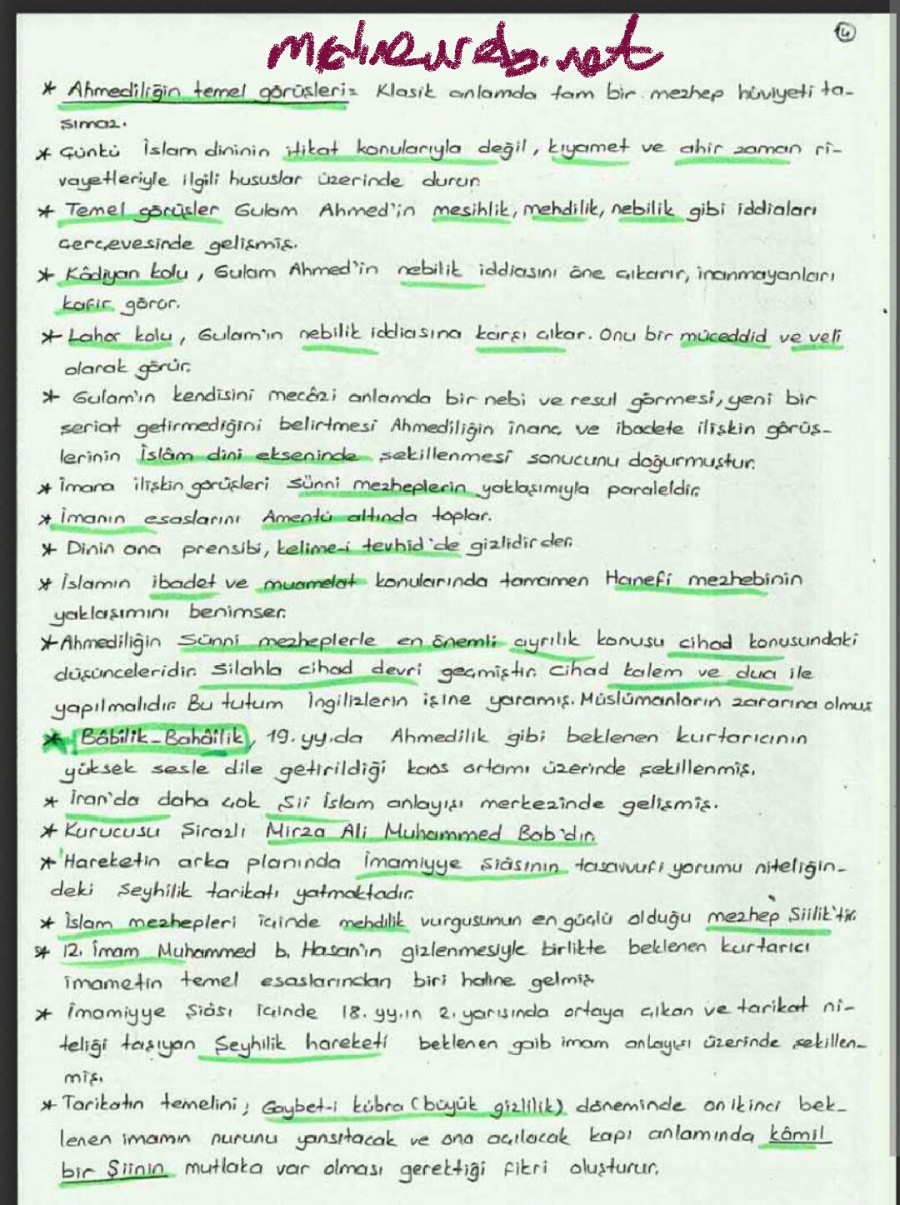 ④
meltem web.net
* Ahmediliğin temel görüşleri: Klasik anlamda tam bir mezhep hüviyeti ta-
şımaz.
* Çünkü İslam dininin itikat konularıyla değil, kıyamet ve ahir zaman ri-
vayetleriyle ilgili hususlar üzerinde durur.
* Temel görüşler Gulam Ahmed'in mesihlik, mehdilik, nebilik gibi iddiaları
çerçevesinde gelişmiş.
* Kâdiyan kolu, Gulam Ahmed'in nebilik iddiasını öne çıkarır, inanmayanları
kafir görür.
* Lahor kolu, Gulam'ın nebilik iddiasına karşı çıkar. Onu bir müceddid ve veli
olarak görür.
* Gulam'ın kendisini mecâzi anlamda bir nebi ve resul görmesi, yeni bir
şeriat getirmediğini belirtmesi Ahmediliğin inanç ve ibadete ilişkin görüş-
lerinin İslâm dini ekseninde şekillenmesi sonucunu doğurmuştur.
* İmana ilişkin görüşleri Sünni mezheplerin yaklaşımıyla paraleldir.
* İmanın esaslarını Amentü altında toplar.
* Dinin ana prensibi, kelime-i tevhid'de gizlidir der.
* İslamın ibadet ve muamelat konularında tamamen Hanefi mezhebinin
yaklaşımını benimser.
* Ahmediliğin Sünni mezheplerle en önemli ayrılık konusu cihad konusundaki
düşünceleridir. Silahla cihad devri geçmiştir. Cihad kalem ve dua ile
yapılmalıdır. Bu tutum İngilizlerin işine yaramış. Müslümanların zararına olmuş
* Bâbilik-Bahâilik, 19.yy.da Ahmedilik gibi beklenen kurtarıcının
yüksek sesle dile getirildiği kaos ortamı üzerinde şekillenmiş.
* İran'da daha çok Şii İslam anlayışı merkezinde gelişmiş.
* Kurucusu Şirazlı Mirza Ali Muhammed Bab'dır.
* Hareketin arka planında İmamiyye Şiâsının tasavvufi yorumu niteliğin-
deki Şeyhilik tarikatı yatmaktadır.
* İslam mezhepleri içinde mehdilik vurgusunun en güçlü olduğu mezhep Şiilik'tir.
* 12. İmam Muhammed b. Hasan'ın gizlenmesiyle birlikte beklenen kurtarıcı
imametin temel esaslarından biri haline gelmiş.
* İmamiyye Şiâsı içinde 18.yy.ın 2. yarısında ortaya çıkan ve tarikat ni-
teliği taşıyan Şeyhilik hareketi beklenen gaib imam anlayışı üzerinde şekillen-
miş.
* Tarikatın temelini; Gaybet-i kübra (büyük gizlilik) döneminde onikinci bek-
lenen imamın nurunu yansıtacak ve ona açılacak kapı anlamında kâmil
bir Şiinin mutlaka var olması gerektiği fikri oluşturur.